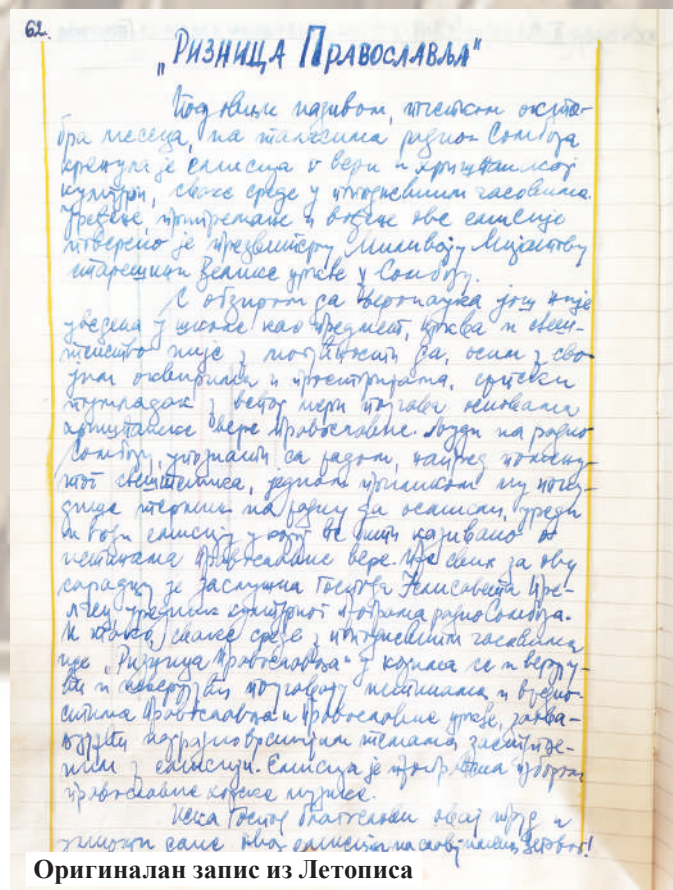 62.
„РИЗНИЦА ПРАВОСЛАВЉА"
Под овим називом, почетком окто-
бра месеца, на таласима радио Сомбора
кренула је емисија о вери и хришћанској
култури, сваке среде у поподневним часовима.
Уређење, припремање и вођење ове емисије
поверено је презвитеру Миливоју Мијатову
старешини Велике цркве у Сомбору.
С обзиром да веронаука још није
уведена у школе као предмет, црква и свеш-
тенство није у могућности да, осим у сво-
јим оквирима и просторијама, српски
подмладак у већој мери поучава основама
хришћанске вере православне. Људи на радио
Сомбору, упознати са радом, напред помену-
тог свештеника, једном приликом му пону-
дише термин на радију да осмисли, уреди
и води емисију у којој ће бити казивано о
истинама Православне вере. Пре свих за ову
сарадњу је заслужна Госпођа Јелисавета
уредник културног програма радио Сомбора.
И тако, сваке среде у поподневним часовима
иде „Ризница Православља" у којима се и верују-
ћи и неверујући поучавају истинама и вредно-
стима Православља и Православне цркве, захва-
љујући најразноврснијим темама заступље-
ним у емисији. Емисија је пропраћена избором
православне духовне музике.
Нека Господ благослови овај труд и
умножи саме емисије на славу имена Његовог!
Оригиналан запис из Летописа